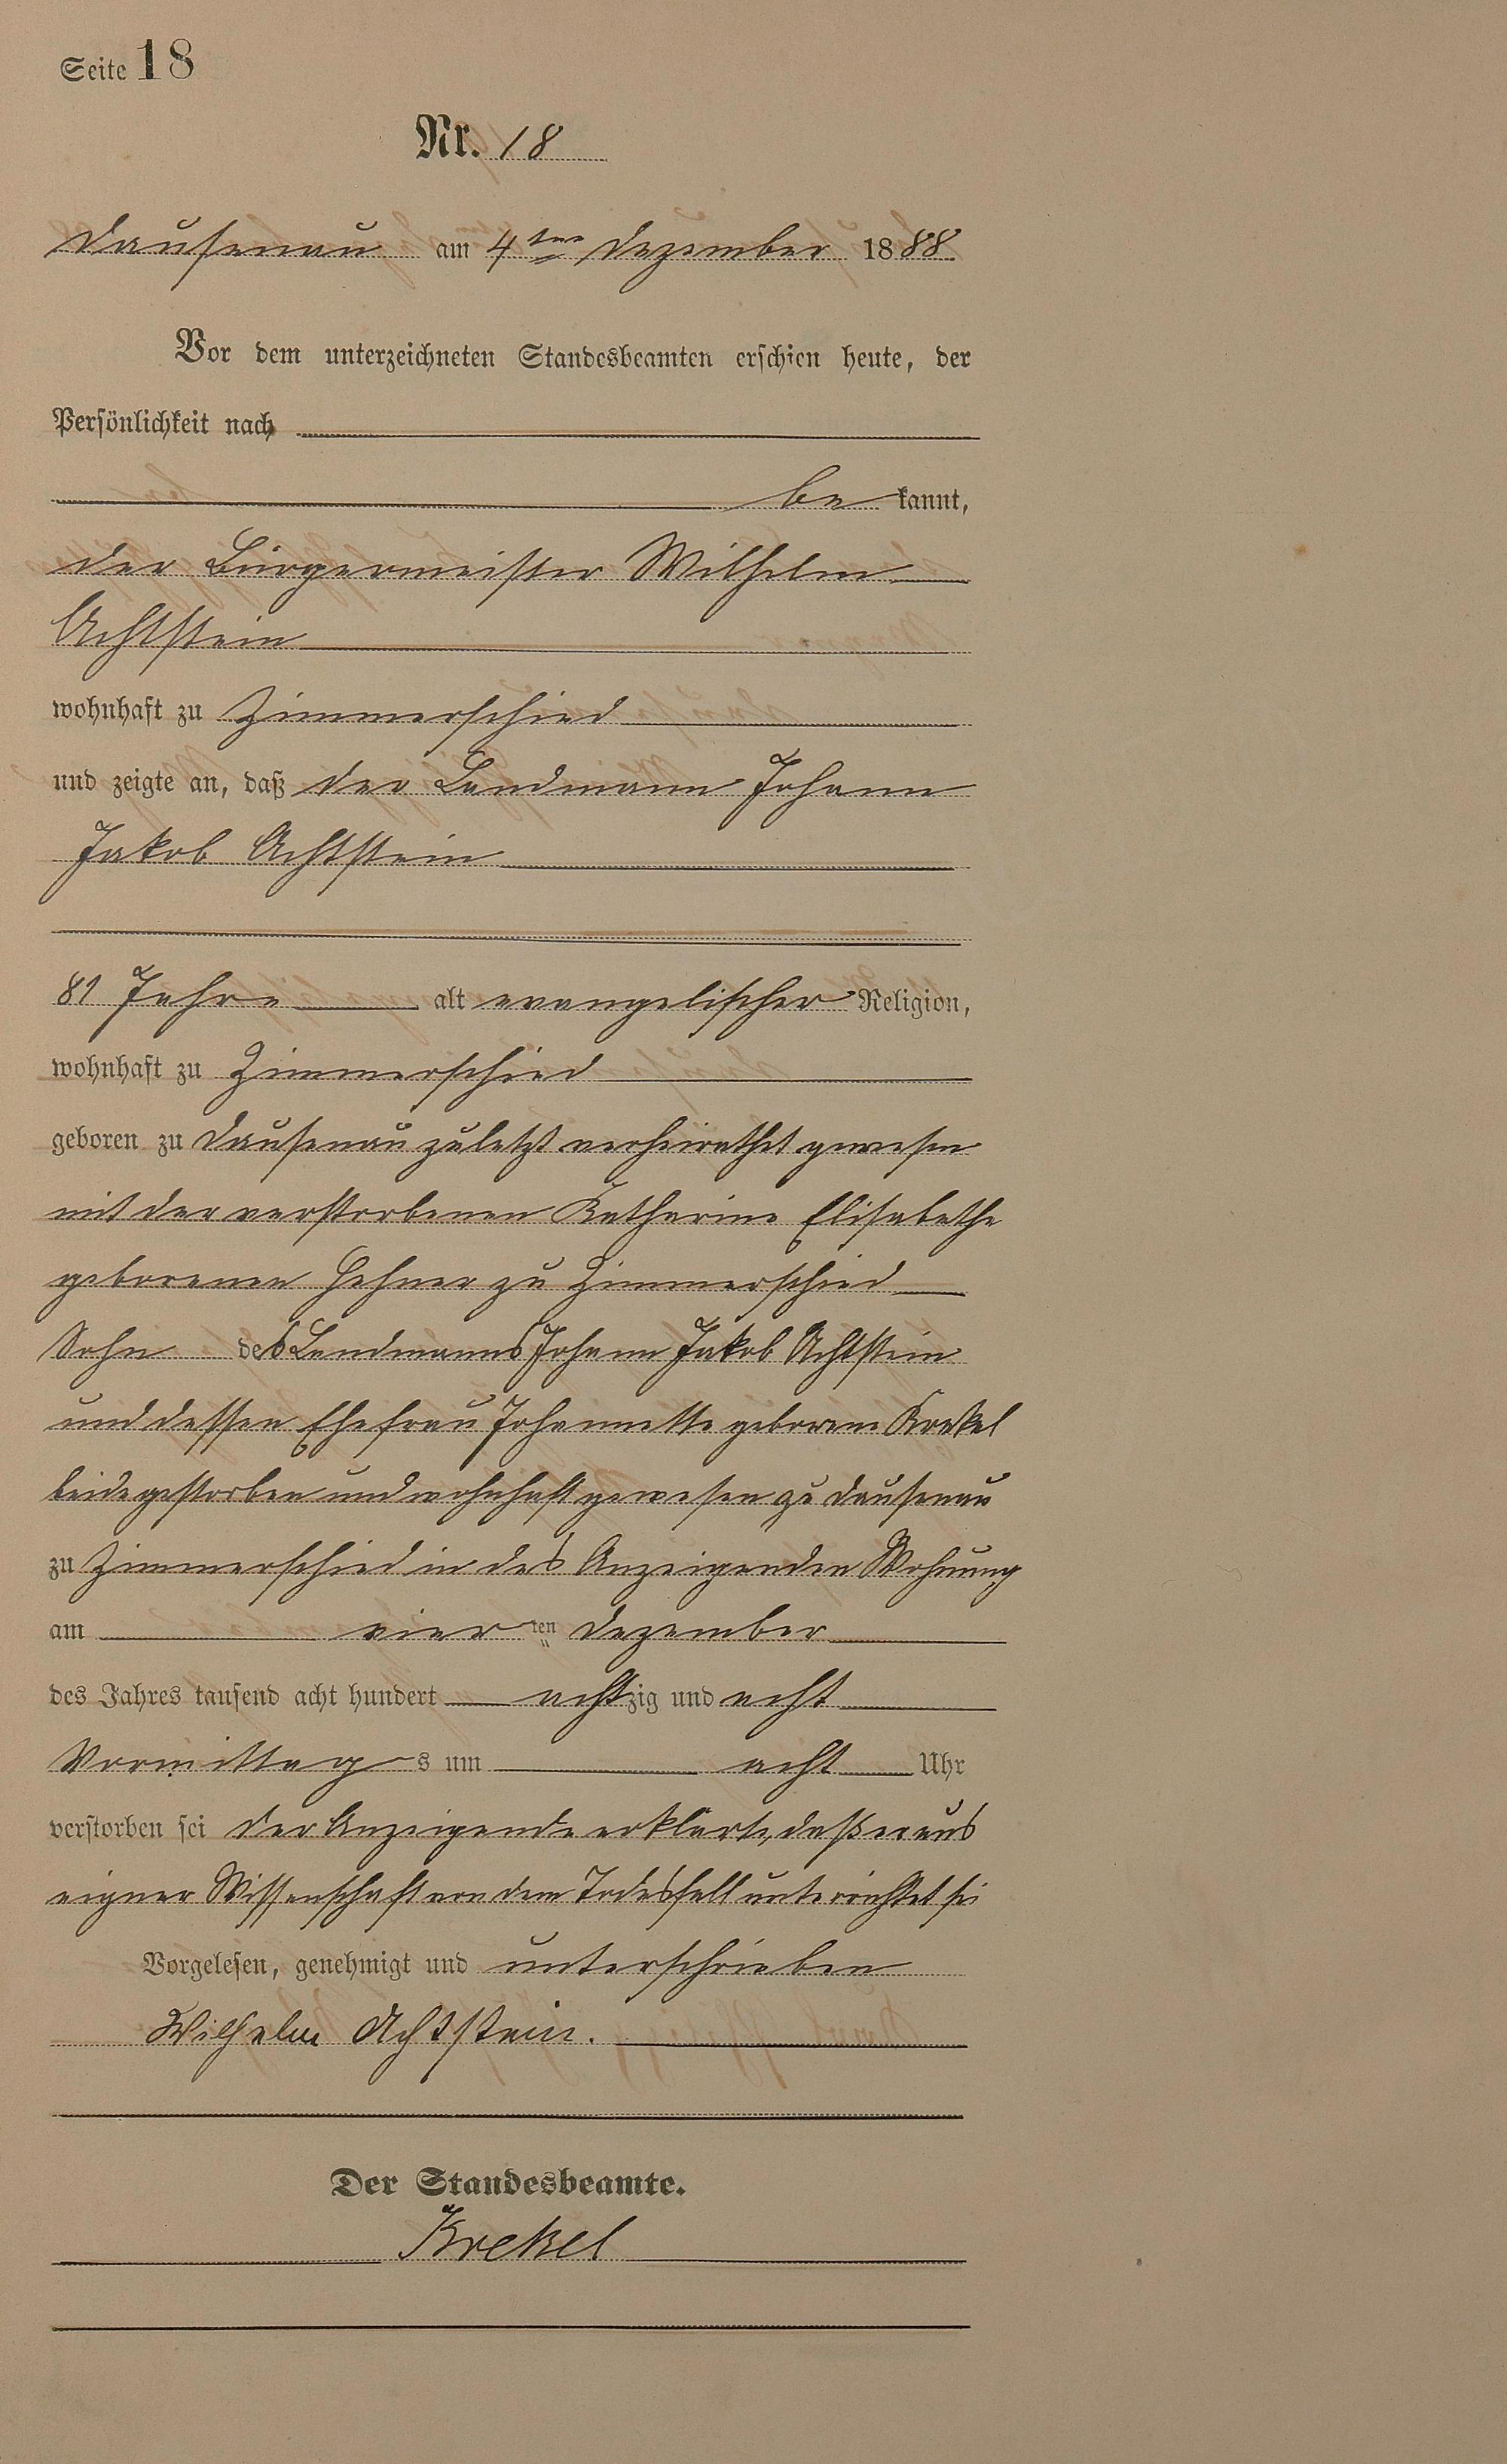 Seite 18
Nr. 18
Dausenau am 4ten Dezember 1888
Vor dem unterzeichneten Standesbeamten erschien heute, der
Persönlichkeit nach
be kannt,
der Bürgermeister Wilhelm
Achtstein
wohnhaft zu Zimmerschied
und zeigte an, daß der Landmann Johann
Jakob Achtstein
81 Jahre alt evangelischer Religion,
wohnhaft zu Zimmerschied
geboren zu Dausenau zuletzt verheirathet gewesen
mit der verstorbenen Katharine Elisabethe
geborenen Hehner zu Zimmerschied
Sohn des Landmanns Johann Jakob Achtstein
und dessen Ehefrau Johannette geborene Krekel
beide gestorben und wohnhaft gewesen zu Dausenau
zu Zimmerschied in des Anzeigenden Wohnung
am vier ten Dezember
des Jahres tausend acht hundert achtzig und acht
Vormittags um acht Uhr
verstorben sei der Anzeigende erklärte, daß er aus
eigner Wissenschaft von dem Todesfall unterrichtet sei
Vorgelesen, genehmigt und unterschrieben
Wilhelm Achtstein.
Der Standesbeamte.
Krekel